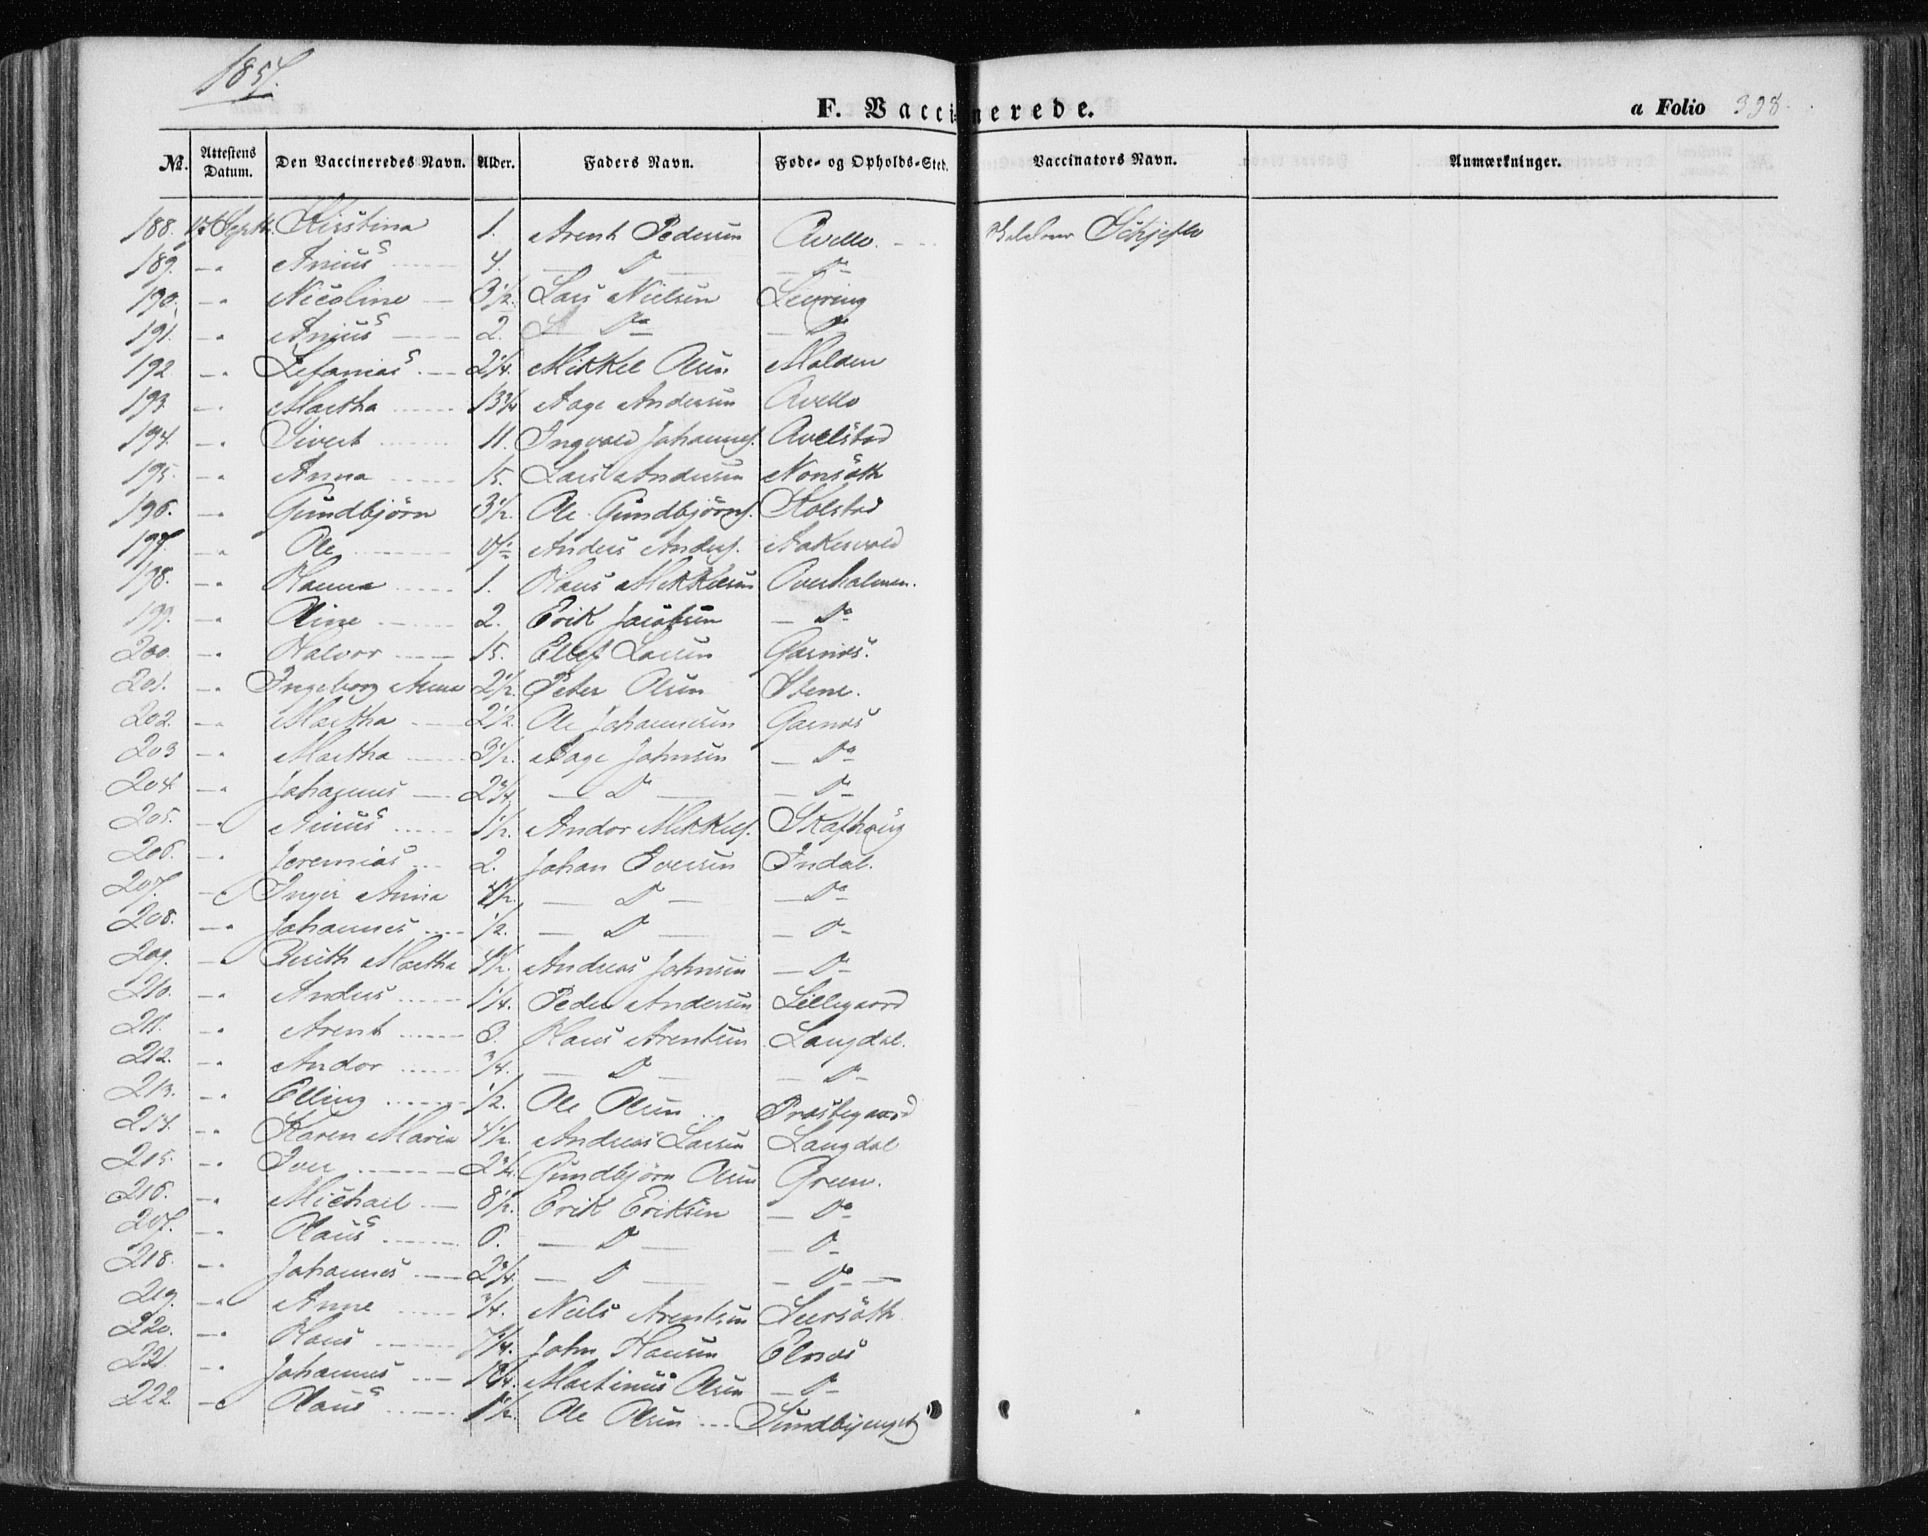 1857.
F. Vaccinerede.
a Folio 398.
No. Attestens Datum. Den Vaccineredes Navn. Alder. Faders Navn. Føde- og Opholds-Sted. Vaccinators Navn. Anmærkninger.
188. Septb. Kirstina 1. Arent Pedersen Avello. Schjeflo
189. -"- Anius 4. — D — — D° —
190. -"- Nicoline 3 1/2. Lars Nielsen Levring
191. -"- Anius 2. — D° — — D° —
192 -"- Zefanias 2 1/4. Mikkel Olsen Molden
193. -"- Martha 13 3/4 Aage Andersen Avello
194. -"- Sivert 11. Ingvald Johannes. Avelstad
195. -"- Anna 15. Lars Andersen Nonsöth
196. -"- Gundbjörn 3 1/2. Ole Gundbjörns. Holstad
197. -"- Ole Anders Anders. Aakervold
198. -"- Hanna 1. Hans Mikkelsen Overholmen.
199. -"- Oline 2. Erik Jacobsen — D° —
200. -"- Halvor 15. Ellef Larsen Garnæs.
201. -"- Ingeborg Anna 2 1/2. Peter Olsen Stene.
202. -"- Martha 2 1/2. Ole Johannesen Garnæs
203 -"- Martha 3 1/2. Aage Johnsen — D° —
204. -"- Johannes 2 3/4. — D — — D —
205. -"- Anius 1 1/2. Andor Mikkels. Skafhaug
206. -"- Jeremias 2. Johan Iversen Indal.
207. -"- Inger Anna 4 1/2. — D — — D° —
208. -"- Johannes 1/2. — D — — D —
209. -"- Berith Martha 4 1/2. Andreas Johnsen — D —
210. -"- Anders 1/4. Peder Andersen Lillegaard
211. -"- Arent 3. Hans Arentsen Langdal.
212. -"- Andor 3/4. — D — — D —
213. -"- Elling 1/2. Ole Olsen Præstegaard
214. -"- Karen Maria 4 1/2. Andreas Larsen Langdal
215. -"- Iver 2 3/4. Gundbjörn Olsen Green.
216. -"- Michael 8 1/2. Erik Eriksen — D° —
217. -"- Olaus 6. — D — — D —
218. -"- Johannes 2 3/4. — D — — D° —
219. -"- Anne 3/4. Niels Arentsen Leersöth
220. -"- Hans John Hansen Elnæs
221. -"- Johannes Martinus Olsen — D —
222 -"- Olaus 1 1/2. Ole Olsen Sundbyenget